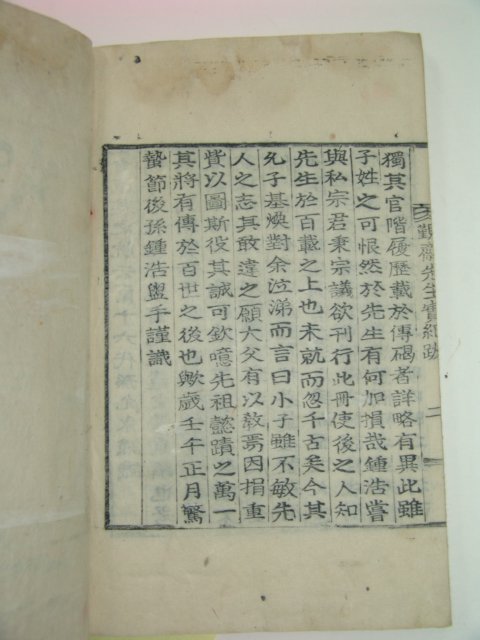 觀齋先生實紀跋 二
獨其官階履歷載於傳碣者詳略有異此雖
子姓之可恨然於先生有何加損哉鍾浩嘗
與私宗君秉宗議欲刊行此冊使後之人知
先生於百載之上也未就而忽千古矣今其
允子基煥對余泣涕而言曰小子雖不敏先
人之志其敢違之願大父有以敎焉因捐重
貲以圖斯役其誠可欽噫先祖懿蹟之萬一
其將有傳於百世之後也歟歲壬午正月驚
蟄節後孫鍾浩盥手謹識